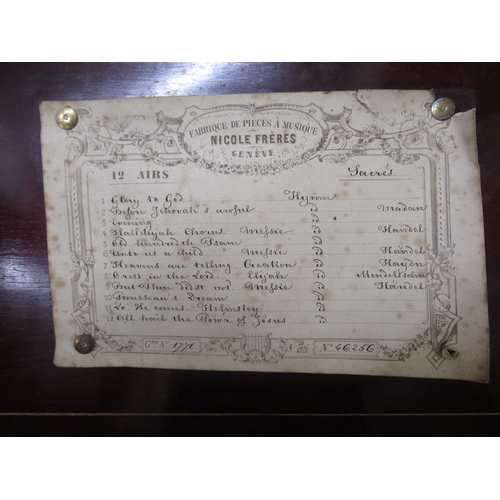 FABRIQUE DE PIECES A MUSIQUE
NICOLE FRÈRES
GENÈVE
12 AIRS Sacrés.
1 Glory to God Hymn
2 Before Jehovah's awful d° Madan
3 Evening d°
4 Hallelujah Chorus. Messie d° Händel
5 Old hundredth Psam d°
6 Unto us a child Messie d° Händel
7 Heavens are telling Creation d° Haydn
8 O rest in the Lord. Elijah d° Mendelssohn
9 But Thou didst not Messie d° Händel
10 Rousseau's Dream d°
11 Lo' He comes. Helmsley d°
12 All hail the Power of Jesus d°
Gme No. 1771 No. 46256